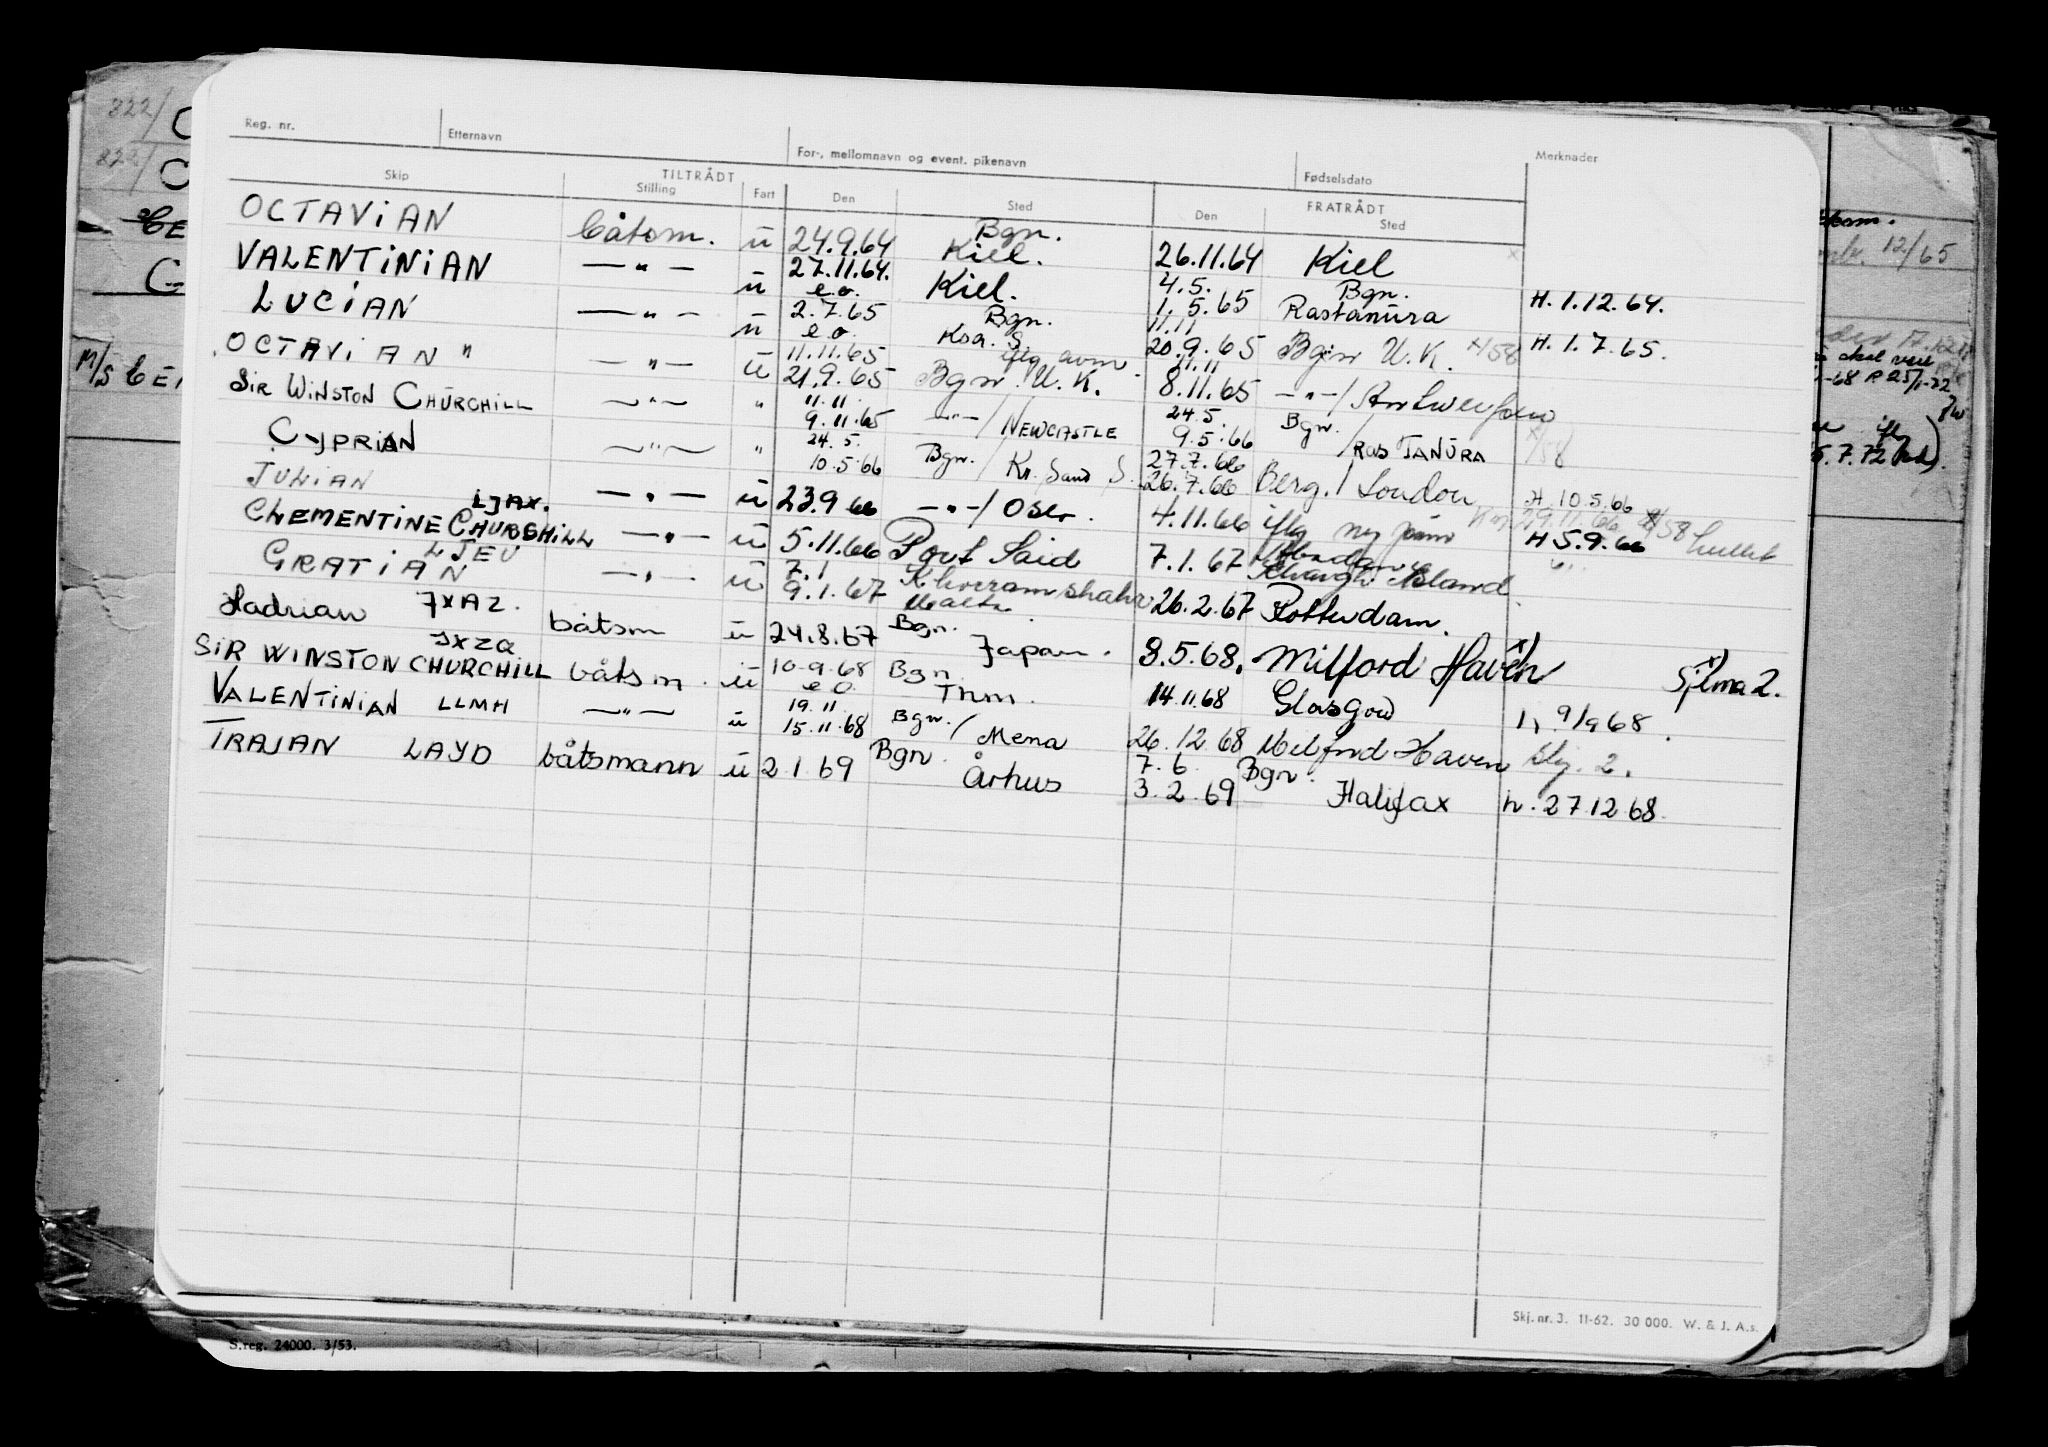 Reg. nr. Etternavn For-, mellomnavn og event. pikenavn Fødselsdato Merknader
TILTRÅDT FRATRÅDT
Skip Stilling Fart Den Sted Den Sted
OCTAVIAN båtsm. u 24.9.64 Bgn. Kiel. 26.11.64 Kiel x
VALENTINIAN —"— u 27.11.64. e.o. Kiel. 4.5. 1.5.65 Bgn. Rastanura H. 1.12.64.
LUCIAN —"— u 2.7.65 e.o. Bgn. Ksa. S. 11.11 20.9.65 Bgn U.K. x/58 H. 1.7.65.
OCTAVIAN " —"— u 11.11.65 21.9.65 Bgn. U.K. 11.11 8.11.65 —"—/Antwerpen
SIR WINSTON CHURCHILL —"— " 11.11. 9.11.65 —"—/NEWCASTLE 24.5. 9.5.66 Bgn. / RAS TANURA x/58
CYPRIAN —"— " 24.5. 10.5.66 Bgn. / Kr. Sand S. 27.7.66 26.7.66 Berg. / London H. 10.5.66
JULIAN LJAX. —"— u 23.9.66 —"—/ Oslo. 4.11.66 iflg ny H 5.9.66
CLEMENTINE CHURCHILL LJEU —"— u 5.11.66 Port Said 7.1.67 Abadan Kharg Island
GRATIAN —"— u 7.1 9.1.67 Khorramshahr Malta 26.2.67 Rotterdam.
Hadrian JXAZ. båtsm u 24.8.67 Bgn. Japan. 8.5.68. Milford Haven x) x) Sjlma 2.
SIR WINSTON CHURCHILL JXZQ båtsm. u 10.9.68 e.o. Bgn Thm. 14.11.68 Glasgow h 9/9 68.
VALENTINIAN LLMH —"— u 19.11. 15.11.68 Bgn. / Mena 26.12.68 Milford Haven Sly. 2.
TRAJAN LAYD båtsmann u 2.1.69 Bgn. Århus 7.6. 3.2.69 Bgn. Halifax h. 27.12.68.
Skj. nr. 3. 11-62. 30 000. W. & J. A.s.
S.reg. 24000. 3/53.
822/ C
822/ C
M/S
12/65